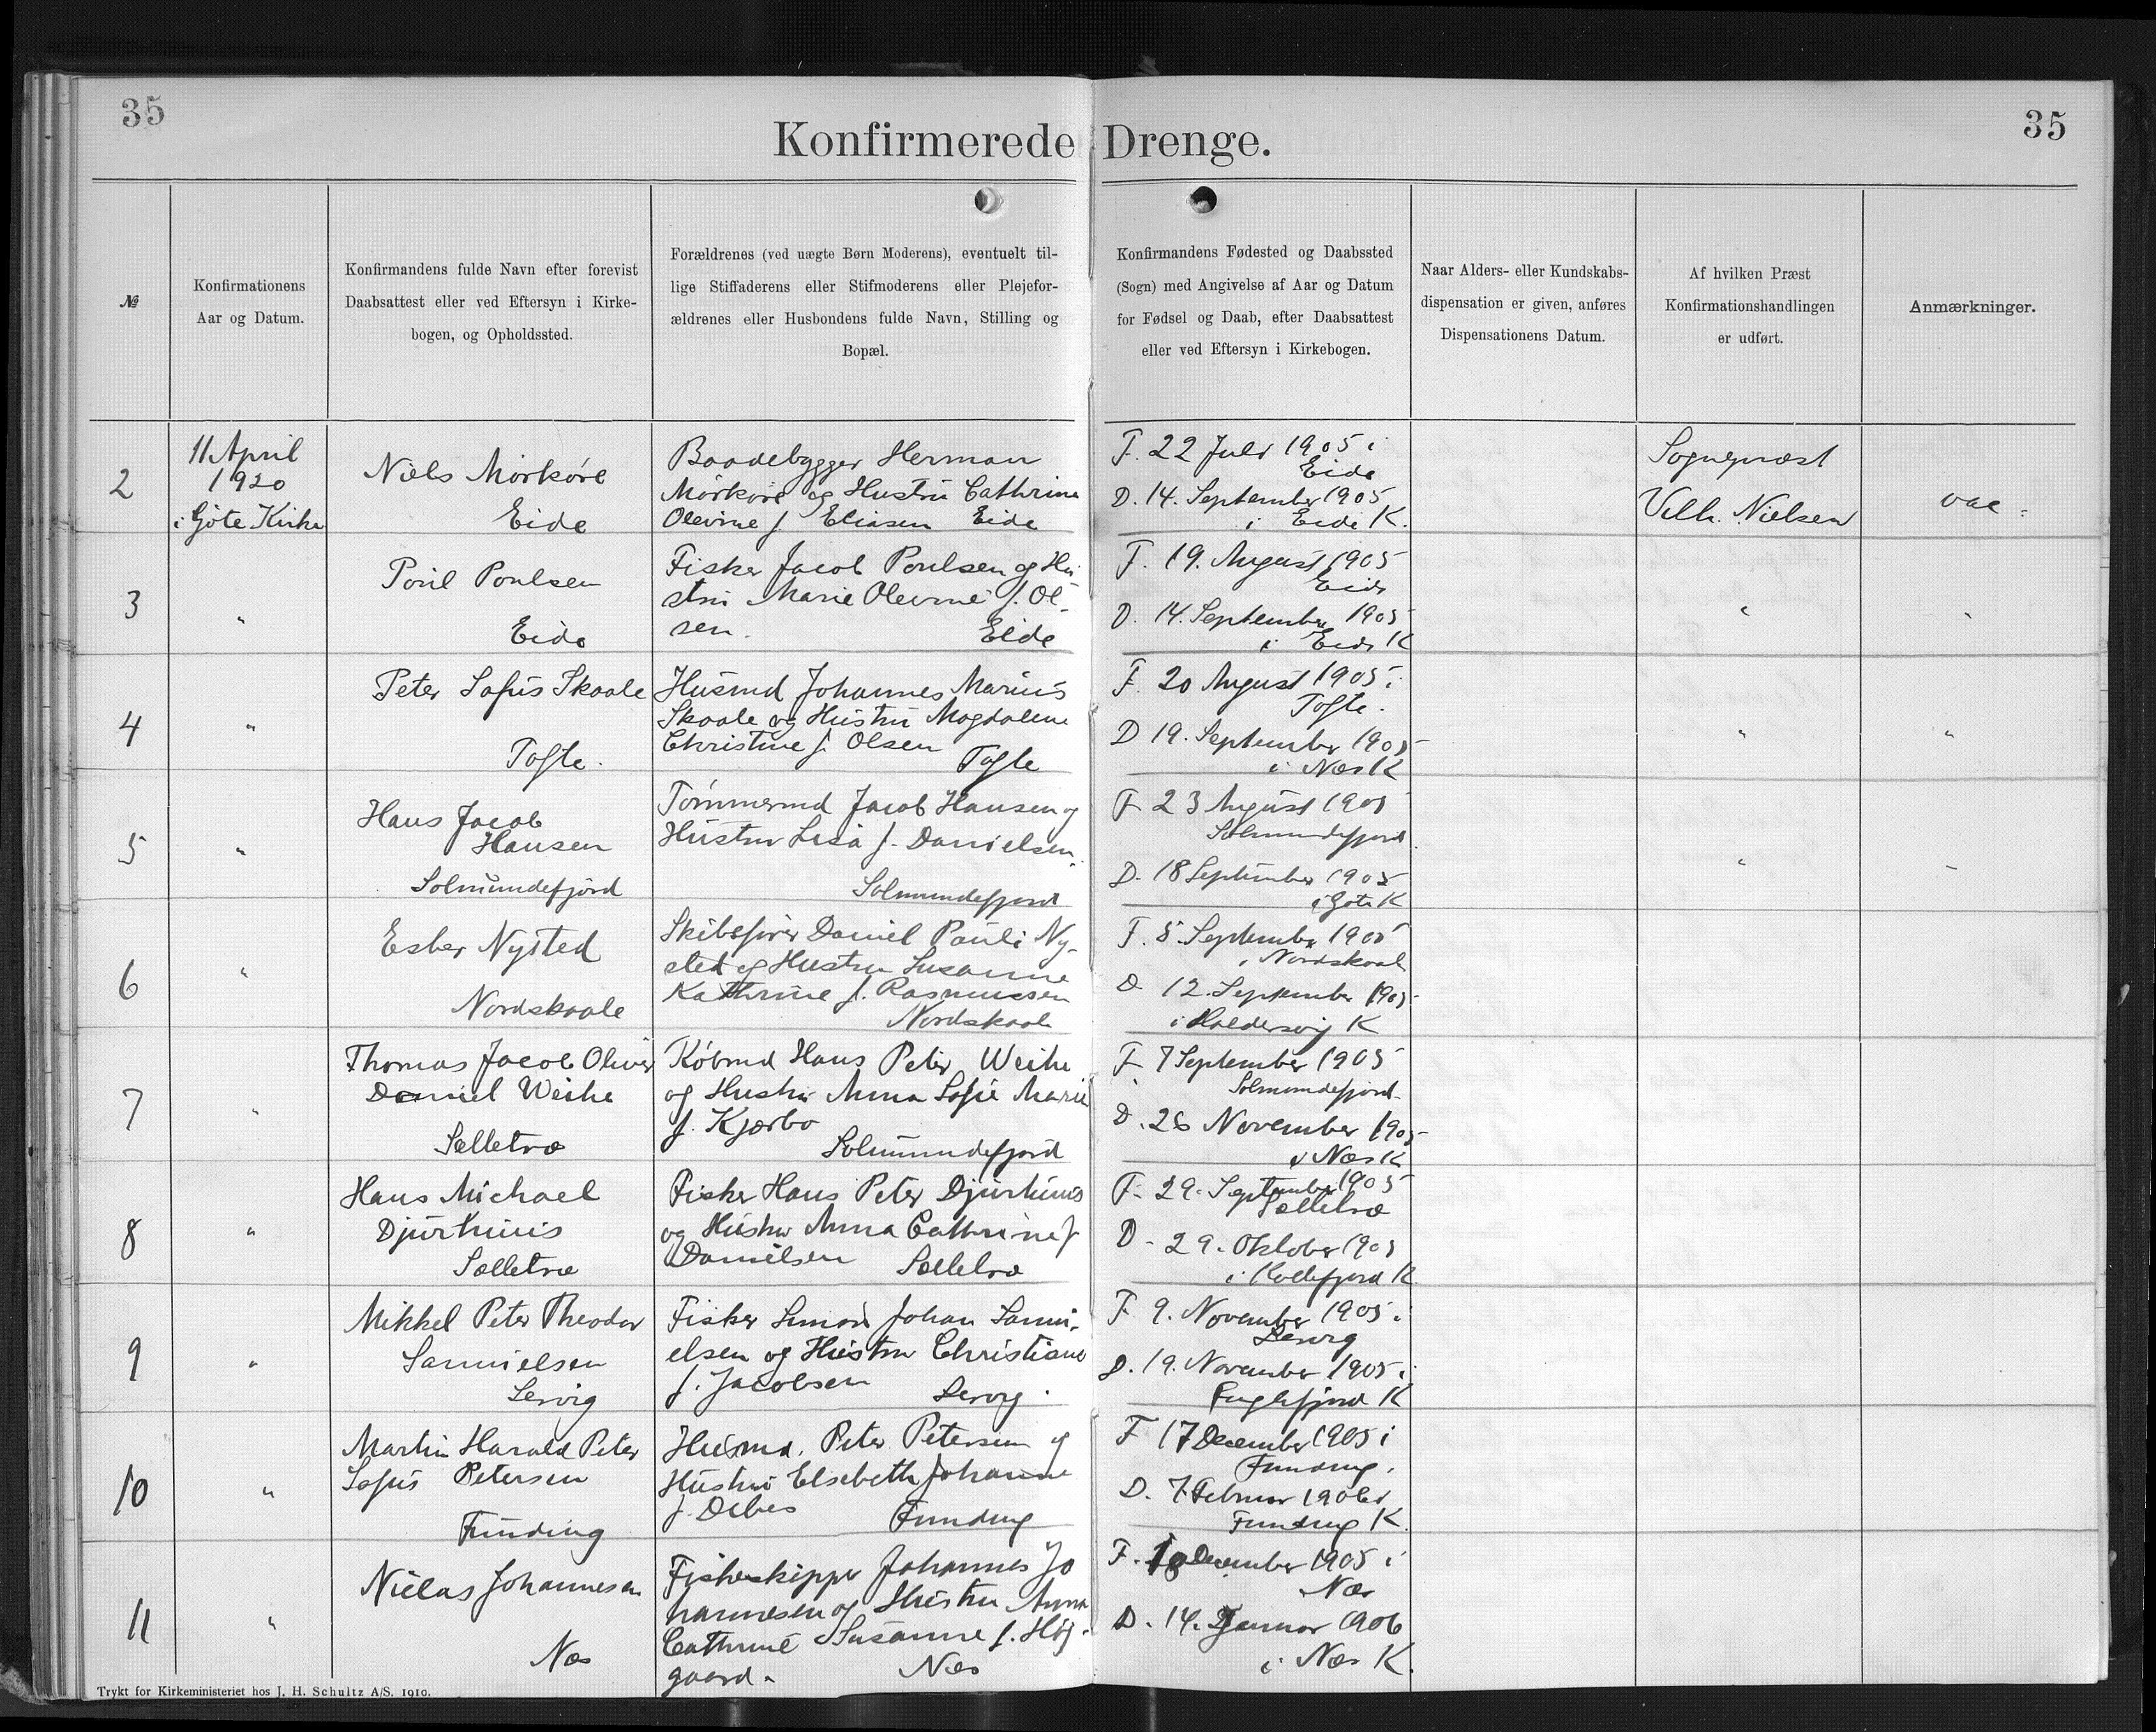 35
35
Konfirmerede Drenge.
№
Konfirmationens
Aar og Datum.
Konfirmandens fulde Navn efter forevist
Daabsattest eller ved Eftersyn i Kirke-
bogen, og Opholdssted.
Forældrenes (ved uægte Børn Moderens), eventuelt til-
lige Stiffaderens eller Stifmoderens eller Plejefor-
ældrenes eller Husbondens fulde Navn, Stilling og
Bopæl.
Konfirmandens Fødested og Daabssted
(Sogn) med Angivelse af Aar og Datum
for Fødsel og Daab, efter Daabsattest
eller ved Eftersyn i Kirkebogen.
Naar Alders- eller Kundskabs-
dispensation er given, anføres
Dispensationens Datum.
Af hvilken Præst
Konfirmationshandlingen
er udført.
Anmærkninger.
2
11 April
1920
i Göte Kirke
Niels Mörköre
Eide
Baadebygger Herman
Mörköre og Hustru Cathrine
Olevine f. Eliasen Eide
F. 22 Juli 1905 i
Eide
D. 14. September 1905
i Eide K.
Sognepræst
Vilh. Nielsen
vac.
3
"
Poul Poulsen
Eide
Fisker Jacob Poulsen og Hu-
stru Marie Olevine f. Ol-
sen. Eide
F. 19. August 1905
Eide
D. 14. September 1905
i Eide K
"
"
4
"
Peter Sofus Skaale
Tofte.
Husmd Johannes Marius
Skaale og Hustru Magdalene
Christine f. Olsen Tofte
F. 20 August 1905 i
Tofte.
D 19. September 1905
i Næs K
"
"
5
"
Hans Jacob
Hansen
Solmundefjord
Tömmermd Jacob Hansen og
Hustru Lisa f. Danielsen.
Solmundefjord
F 23 August 1905
Solmundefjord
D. 18 September 1905
i Göte K
"
"
6
"
Esber Nysted
Nordskaale
Skibsförer Daniel Pauli Ny-
sted og Hustru Susanne
Kathrine f. Rasmussen
Nordskaale
F. 5. September 1905
i Nordskaale
D 12. September 1905
i Haldersvig K
7
"
Thomas Jacob Oliver
Daniel Weihe
Selletræ
Köbmd Hans Peter Weihe
og Hustru Anna Sofie Marie
f. Kjærbo
Solmundefjord
F 7 September 1905
i Solmundefjord
D. 26 November 1905
i Næs K
8
"
Hans Michael
Djurhuus
Selletræ
Fisker Hans Peter Djurhuus
og Hustru Anna Cathrine f
Danielsen Selletræ
F. 29. September 1905
Selletræ
D. 29. Oktober 1905
i Kollefjord K.
9
"
Mikkel Peter Theodor
Samuielsen
Lervig
Fisker Simon Johan Samu-
elsen og Hustru Christiane
f. Jacobsen Lervig.
F 9. November 1905 i
Lervig
D. 19. November 1905 i
Fuglefjord K
10
"
Martin Harald Peter
Sofus Petersen
Funding
Husmd. Peter Petersen og
Hustru Elsebeth Johanne
f. Debes Funding
F 17 December 1905 i
Funding.
D. 7 Februar 1906 i
Funding K.
11
"
Niclas Johannesen
Næs
Fiskeskipper Johannes Jo
hannesen og Hustru Anna
Cathrine Susanne f. Höj-
gaard. Næs
F. 18 December 1905 i
Næs
D. 14. Januar 1906
i Næs K.
Trykt for Kirkeministeriet hos J. H. Schultz A/S. 1919.